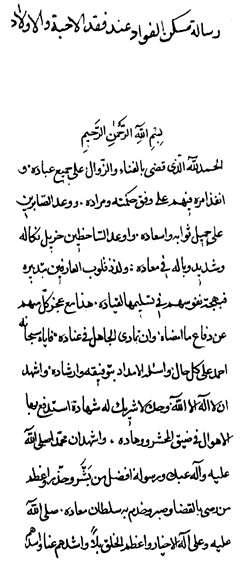 رسالة مسكن الفواد عند فقد الاحبة والاولاد
بسم الله الرحمن الرحيم
الحمد لله الذى قضى بالفناء والزوال على جميع عباده و
انفذ امره فيهم على وفق حكمته ومراده ووعد الصابرين
على جميل ثوابه واسعاده واوعد الساخطين جزيل نكاله
وشديد وباله في معاده ولذذ قلوب العارفين بتدبيره
فبهجة نفوسهم في تسليمها لقياده هذا مع عجز كل منهم
عن دفاع ما امضاه وان تمادى الجاهل في عناده فاياه سبحانه
احمد على كل حال واسئله الامداد بتوفيقه وارشاده واشهد
ان لا اله الا الله وحده لا شريك له شهادة استدفع بها
الاهوال في ضيق المحشر ووهاده واشهد ان محمدا صلى الله
عليه وآله عبده ورسوله افضل من بشر وحذر واعظم
من رضى بالقضا وصبر وخدم به سلطان معاده صلى الله
عليه وعلى آله الاخيار واعظم الخلق بلاء واشدهم عناء واسدهم